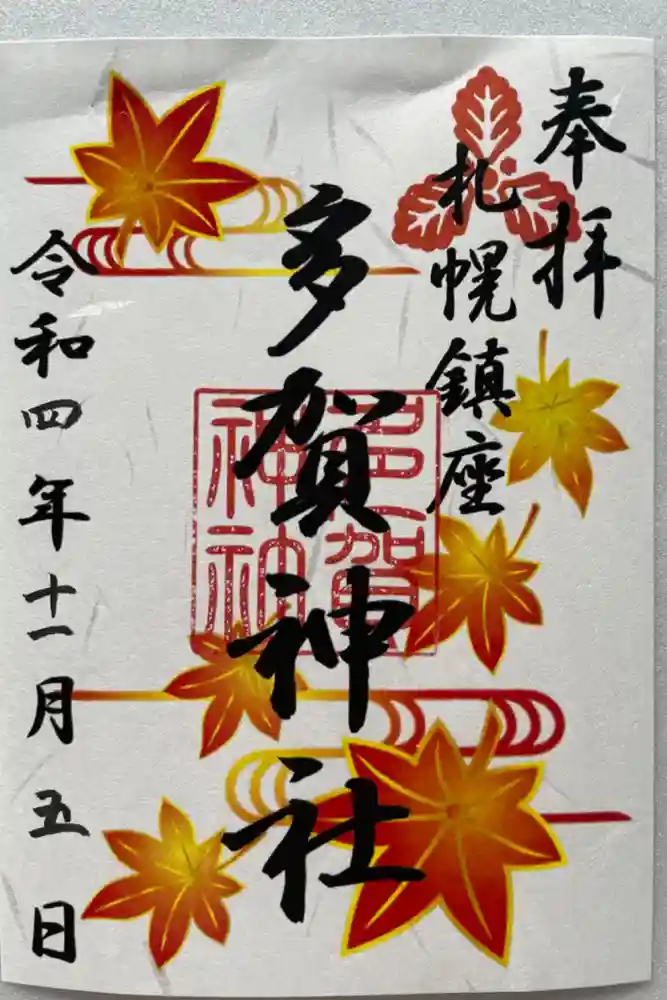 奉拝
札幌鎮座
多賀神社
多賀
神社
令和四年十一月五日